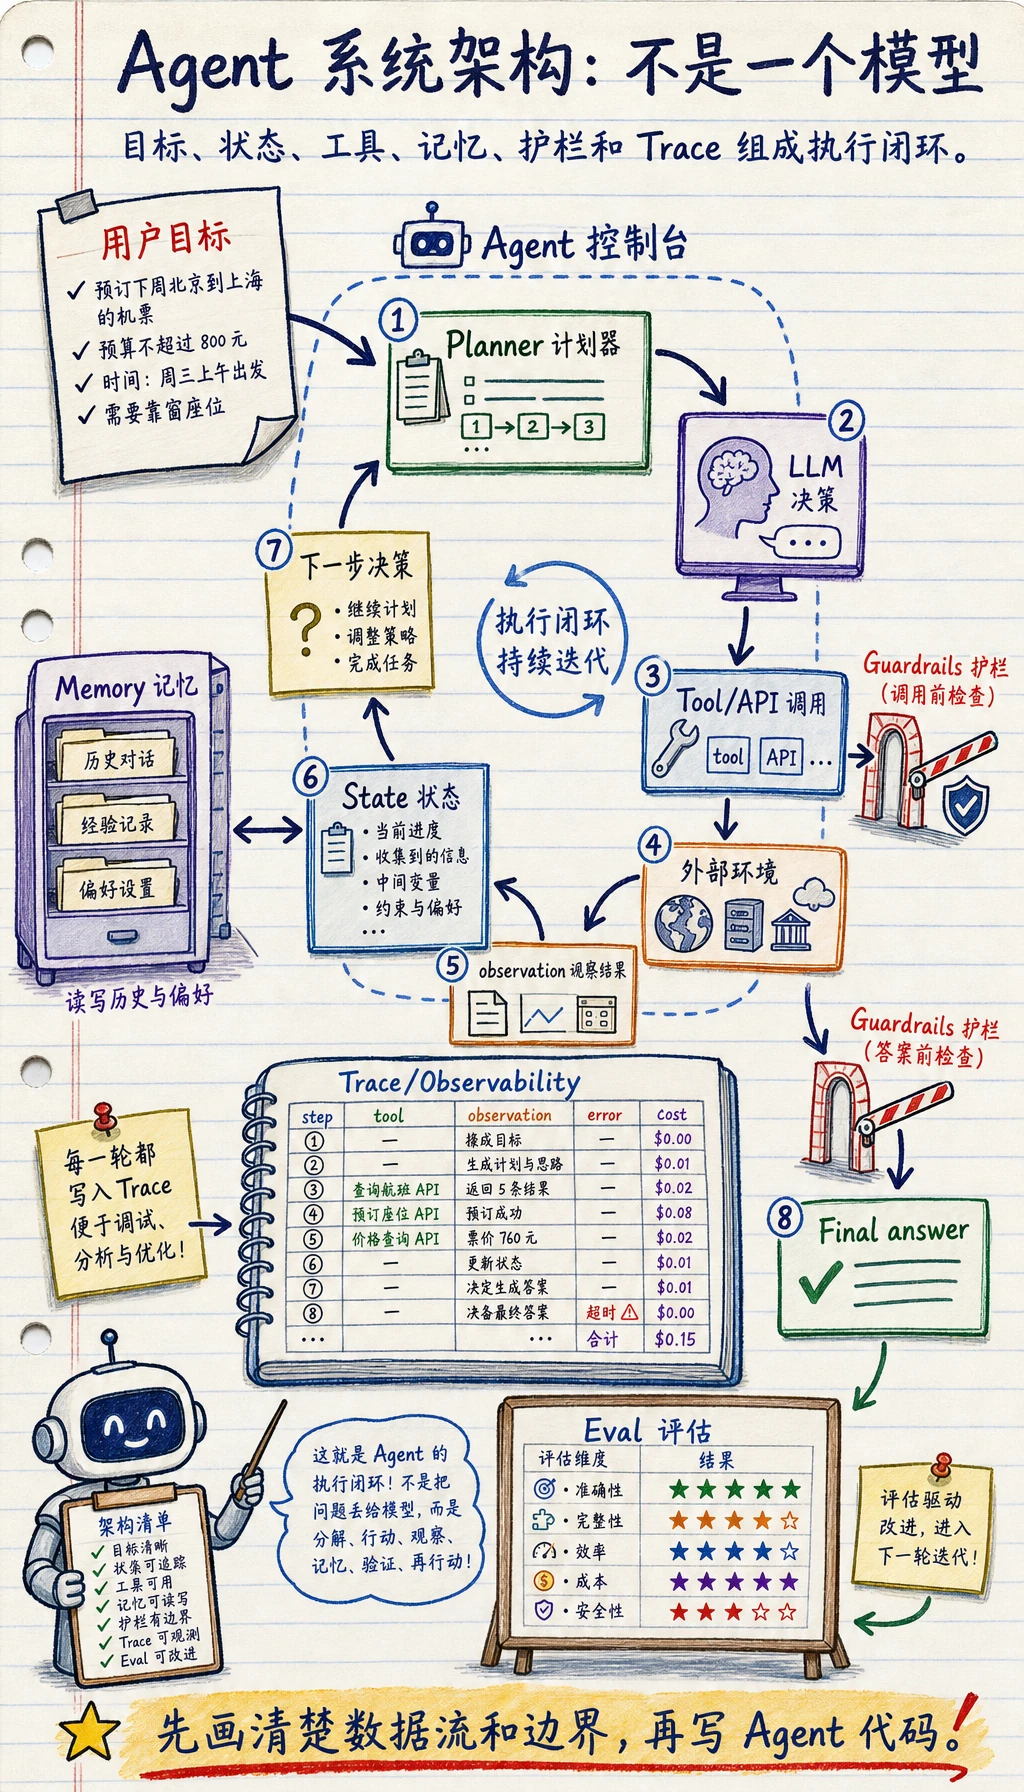 Agent 系统架构：不是一个模型
目标、状态、工具、记忆、护栏和 Trace 组成执行闭环。
用户目标
✓ 预订下周北京到上海
的机票
✓ 预算不超过 800 元
✓ 时间：周三上午出发
✓ 需要靠窗座位
Agent 控制台
1
Planner 计划器
1 → 2 → 3
...
2
LLM
决策
...
3
Tool/API 调用
tool API ...
Guardrails 护栏
（调用前检查）
4
外部环境
5
observation 观察结果
6
State 状态
• 当前进度
• 收集到的信息
• 中间变量
• 约束与偏好
...
7
下一步决策
?
• 继续计划
• 调整策略
• 完成任务
执行闭环
持续迭代
Memory 记忆
历史对话
经验记录
偏好设置
读写历史与偏好
Guardrails 护栏
（答案前检查）
8
Final answer
每一轮都
写入 Trace
便于调试、
分析与优化！
Trace/Observability
step tool observation error cost
① — 接成目标 — $0.00
② — 生成计划与思路 — $0.01
③ 查询航班 API 返回 5 条结果 — $0.02
④ 预订座位 API 预订成功 — $0.08
⑤ 价格查询 API 票价 760 元 — $0.02
⑥ — 更新状态 — $0.01
⑦ — 决定生成答案 — $0.01
⑧ — 决备最终答案 超时 $0.00
... ... 合计 $0.15
架构清单
✓ 目标清晰
✓ 状态可追踪
✓ 工具可用
✓ 记忆可读写
✓ 护栏有边界
✓ Trace 可观测
✓ Eval 可改进
这就是 Agent 的
执行闭环！不是把
问题丢给模型，而是
分解、行动、观察、
记忆、验证、再行动！
Eval 评估
评估维度 结果
• 准确性 ★★★★★
• 完整性 ★★★★☆
• 效率 ★★★★☆
$ • 成本 ★★★★★
• 安全性 ★★★☆☆
评估驱动
改进，进入
下一轮迭代！
先画清楚数据流和边界，再写 Agent 代码！